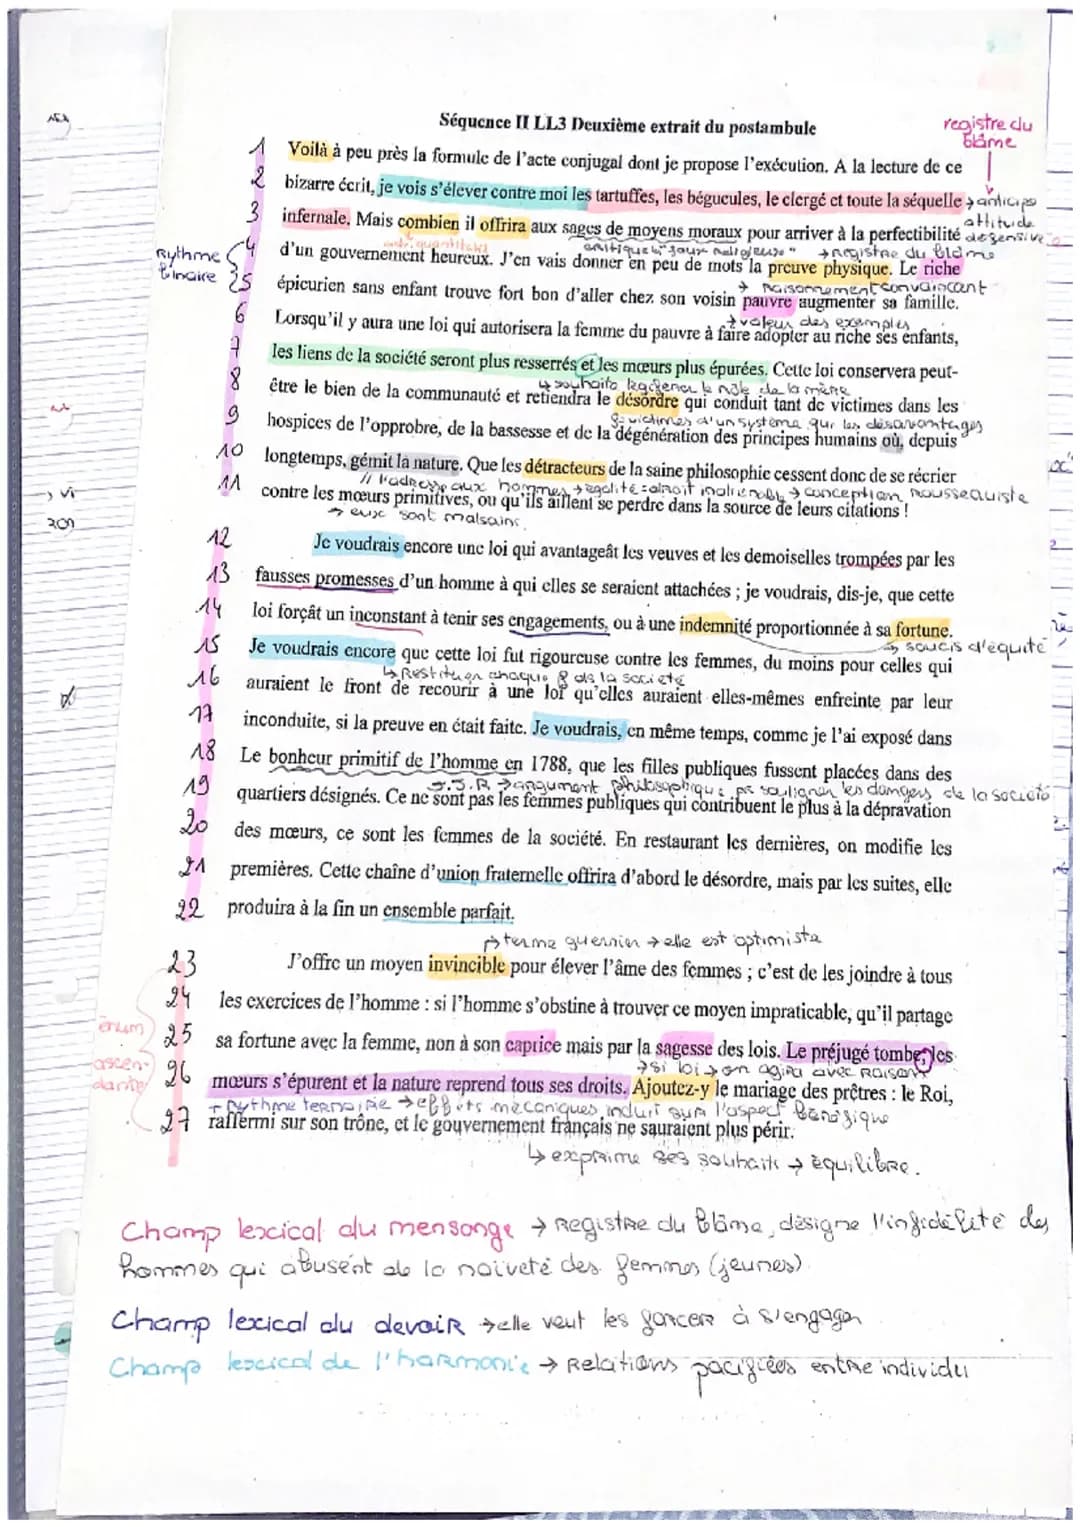 Séquence II LL3 Deuxième extrait du postambule
registre du
blâme
1 Voilà à peu près la formule de l'acte conjugal dont je propose l'exécution. A la lecture de ce
2 bizarre écrit, je vois s'élever contre moi les tartuffes, les bégueules, le clergé et toute la séquelle → anticipe
attitude
3 infernale. Mais combien il offrira aux sages de moyens moraux pour arriver à la perfectibilité défensive
adv. quantitatif critique les "faux religieux" → registre du blâme
Rythme
binaire
4 d'un gouvernement heureux. J'en vais donner en peu de mots la preuve physique. Le riche
→ Raisonnement convaincant
5 épicurien sans enfant trouve fort bon d'aller chez son voisin pauvre augmenter sa famille.
→ valeur des exemples
6 Lorsqu'il y aura une loi qui autorisera la femme du pauvre à faire adopter au riche ses enfants,
7 les liens de la société seront plus resserrés et les mœurs plus épurées. Cette loi conservera peut-
↳ souhaite le rôle de la mère
8 être le bien de la communauté et retiendra le désordre qui conduit tant de victimes dans les
↳ victimes d'un système qui les désavantages
9 hospices de l'opprobre, de la bassesse et de la dégénération des principes humains où, depuis
10 longtemps, gémit la nature. Que les détracteurs de la saine philosophie cessent donc de se récrier
// l'adresse aux hommes → égalité = droit inaliénable → conception rousseauiste
11 contre les mœurs primitives, ou qu'ils aillent se perdre dans la source de leurs citations !
→ eux sont malsains
12 Je voudrais encore une loi qui avantageât les veuves et les demoiselles trompées par les
13 fausses promesses d'un homme à qui elles se seraient attachées ; je voudrais, dis-je, que cette
14 loi forçât un inconstant à tenir ses engagements, ou à une indemnité proportionnée à sa fortune.
↳ soucis d'équité
15 Je voudrais encore que cette loi fut rigoureuse contre les femmes, du moins pour celles qui
↳ Restituer chaque ds la société
16 auraient le front de recourir à une loi qu'elles auraient elles-mêmes enfreinte par leur
17 inconduite, si la preuve en était faite. Je voudrais, en même temps, comme je l'ai exposé dans
18 Le bonheur primitif de l'homme en 1788, que les filles publiques fussent placées dans des
J.J.R → argument philosophique pr souligner les dangers de la société
19 quartiers désignés. Ce ne sont pas les femmes publiques qui contribuent le plus à la dépravation
20 des mœurs, ce sont les femmes de la société. En restaurant les dernières, on modifie les
21 premières. Cette chaîne d'union fraternelle offrira d'abord le désordre, mais par les suites, elle
22 produira à la fin un ensemble parfait.
→ terme guerrier → elle est optimiste
23 J'offre un moyen invincible pour élever l'âme des femmes ; c'est de les joindre à tous
24 les exercices de l'homme : si l'homme s'obstine à trouver ce moyen impraticable, qu'il partage
énum
ascen-
dante
25 sa fortune avec la femme, non à son caprice mais par la sagesse des lois. Le préjugé tombe, les
→ si loi → on agira avec Raison
26 mœurs s'épurent et la nature reprend tous ses droits. Ajoutez-y le mariage des prêtres : le Roi,
+ Rythme ternaire → effets mécaniques induit sur l'aspect bénéfique
27 raffermi sur son trône, et le gouvernement français ne sauraient plus périr.
↳ exprime ses souhaits → équilibre.
Champ lexical du mensonge → Registre du blâme, désigne l'infidélité des
hommes qui abusent de la naïveté des femmes (jeunes)
Champ lexical du devoir → elle veut les forcer à s'engager
Champ lexical de l'harmonie → Relations pacifiées entre individu